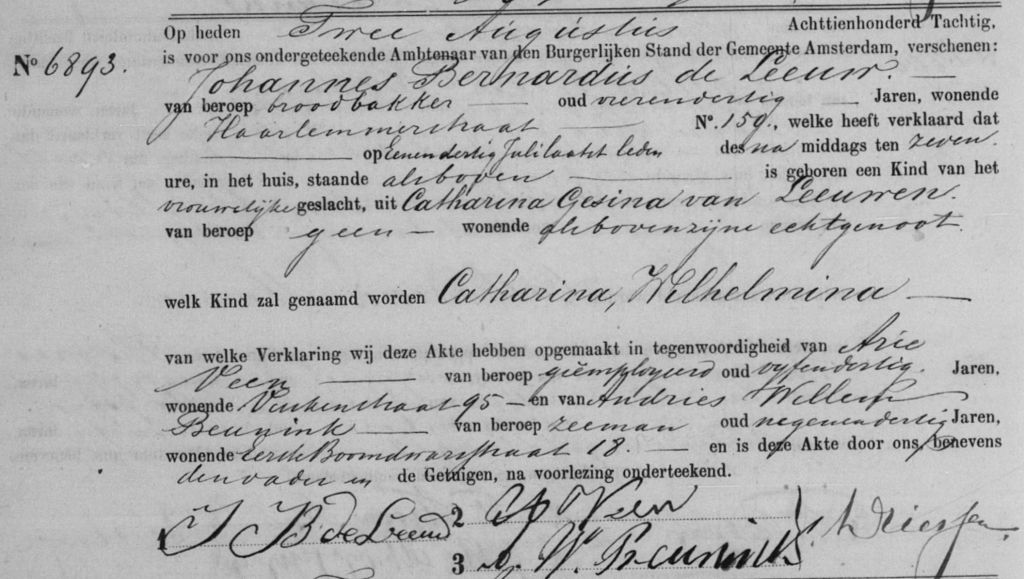 Op heden Twee Augustus Achttienhonderd Tachtig,
No 6893. is voor ons ondergeteekende Ambtenaar van den Burgerlijken Stand der Gemeente Amsterdam, verschenen:
Johannes Bernardus de Leeuw.
van beroep broodbakker oud vierendertig Jaren, wonende
Haarlemmerstraat No. 159., welke heeft verklaard dat
op Eenendertig Juli laatstleden des na middags ten zeven
ure, in het huis, staande alsboven is geboren een Kind van het
vrouwelijke geslacht, uit Catharina Gesina van Leeuwen.
van beroep geen wonende alsboven zijne echtgenoot.
welk Kind zal genaamd worden Catharina, Wilhelmina
van welke Verklaring wij deze Akte hebben opgemaakt in tegenwoordigheid van Arie
Veen van beroep geëmployeerd oud vyfendertig. Jaren,
wonende Vinkenstraat 95 en van Andries Willem
Beunink van beroep zeeman oud negenendertig Jaren,
wonende eerste Boomdwarsstraat 18. en is deze Akte door ons, benevens
den vader en de Getuigen, na voorlezing onderteekend.
J B de Leeuw 2 Veen
3 A. W. Beunink